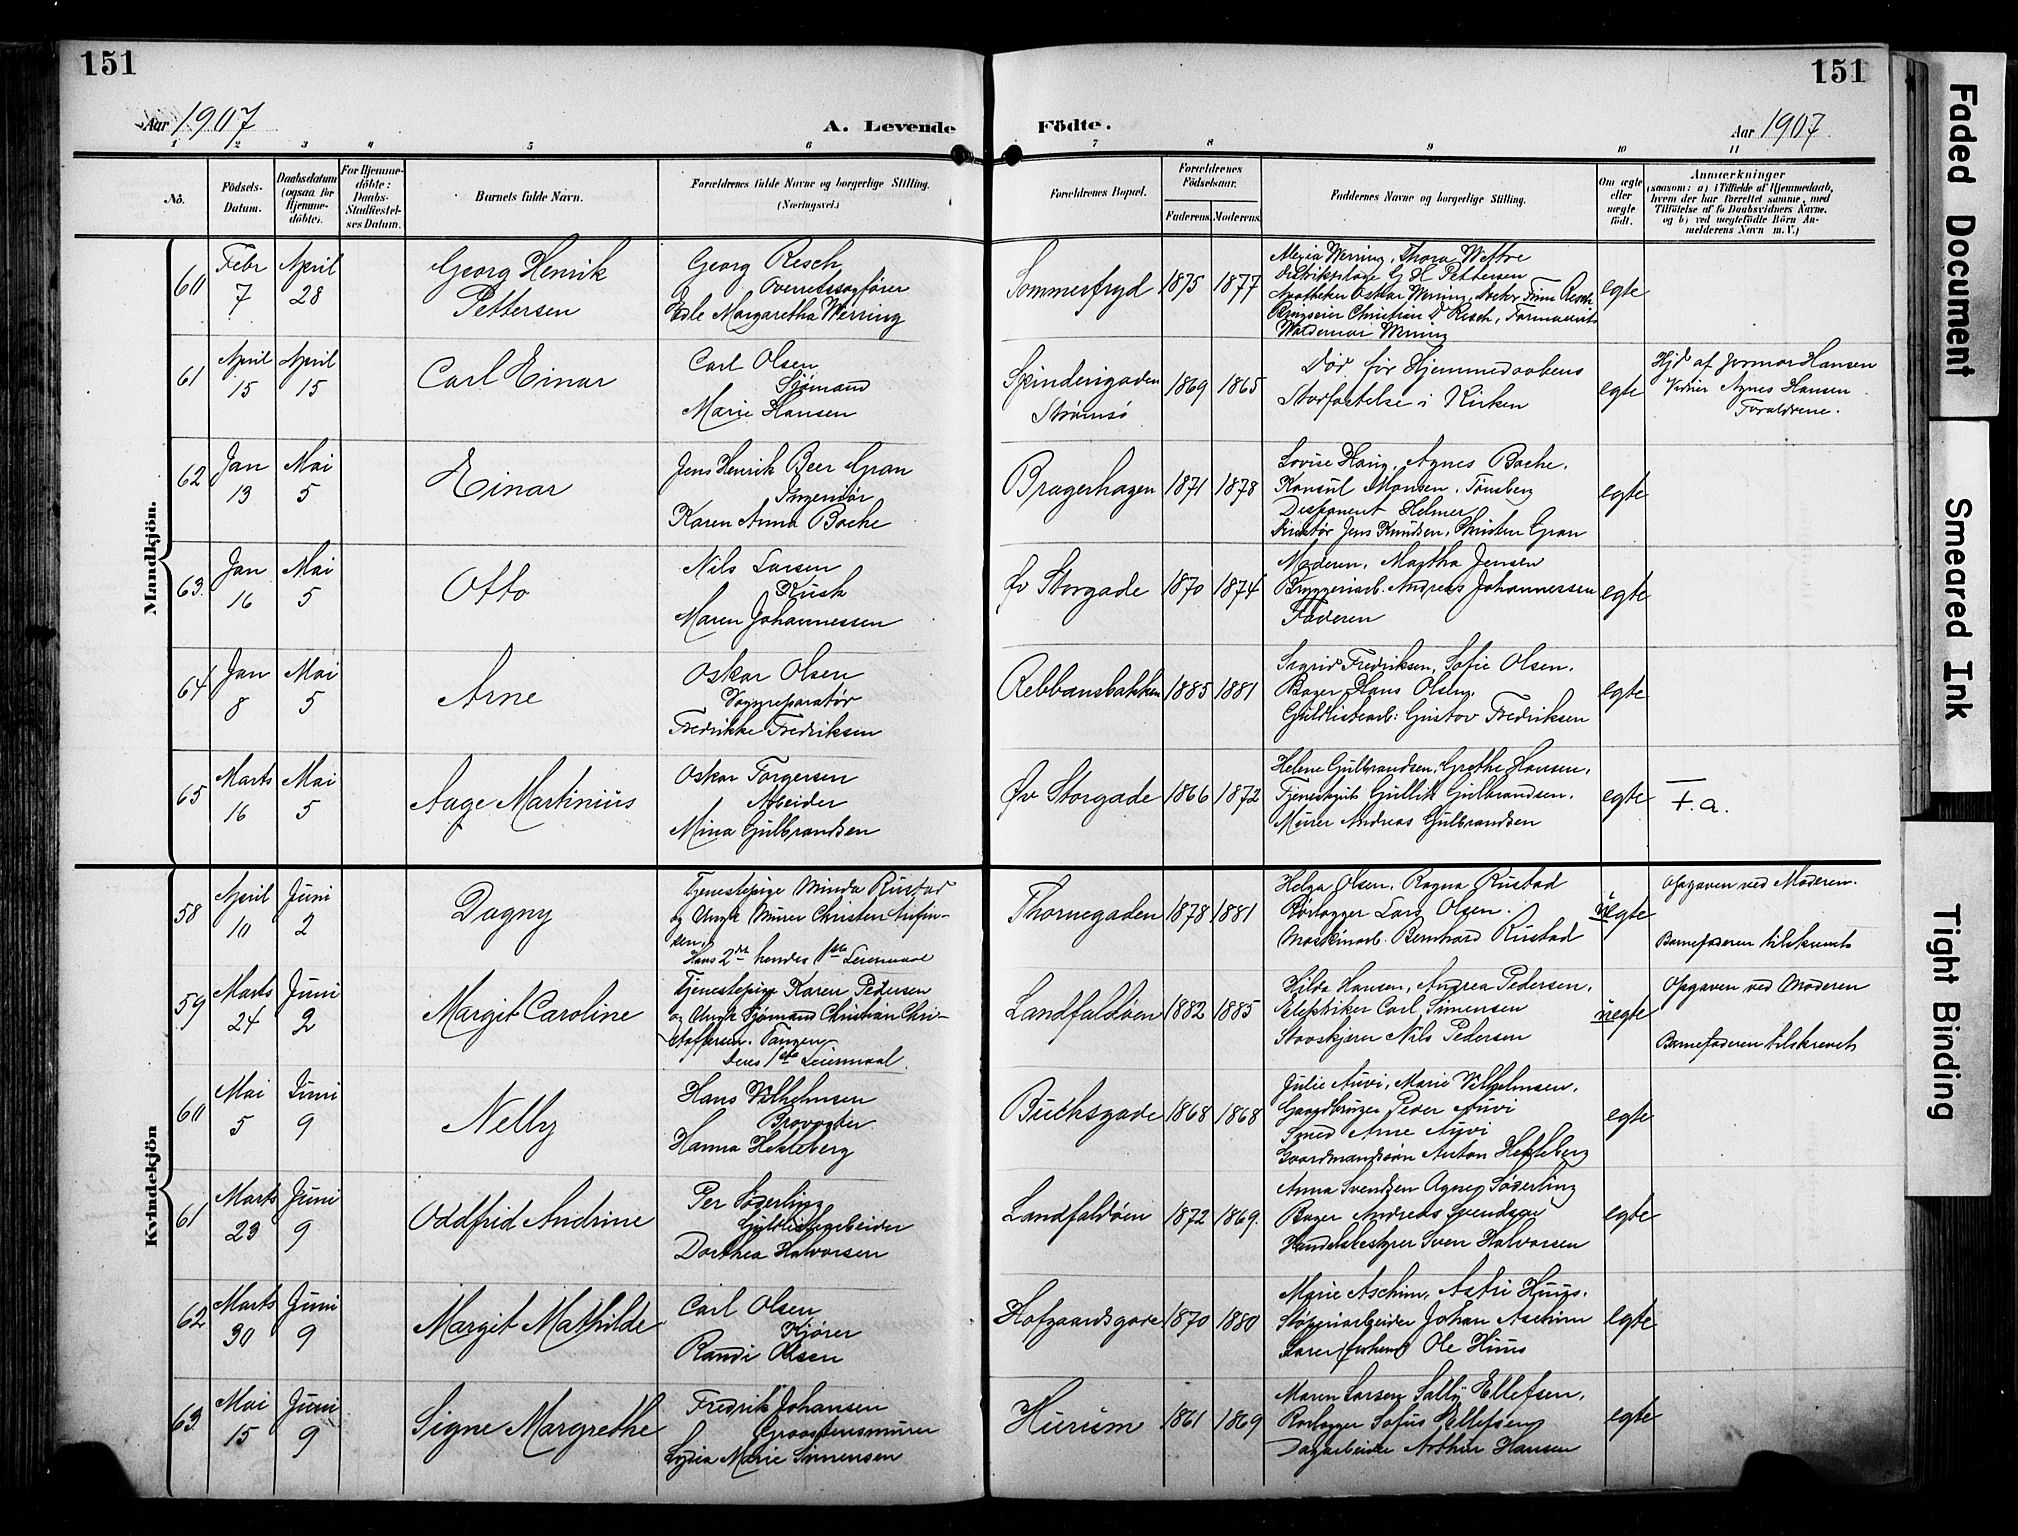 151
151
Aar 1907
A. Levende
Födte.
Aar 1907.
1 2 3 4 5 6 7 8 9 10 11
No.
Födsels-
Datum.
Daabsdatum
(ogsaa for
Hjemme-
döbte).
For Hjemme-
döbte:
Daabs-
Stadfæstel-
ses Datum.
Barnets fulde Navn.
Forældrenes fulde Navne og borgerlige Stilling.
(Næringsvei.)
Forældrenes Bopæl.
Forældrenes
Födselsaar.
Faderens
Moderens
Faddernes Navne og borgerlige Stilling.
Om ægte
eller
uægte
födt.
Anmærkninger
(saasom: a) i Tilfælde af Hjemmedaab,
hvem der har forrettet samme, med
Tilföielse af to Daabsvidners Navne,
og b) ved uægtefödte Börn An-
melderens Navn m. V.)
Mandkjön.
60
Febr
7
April
28
Georg Henrik
Pettersen
Georg Resch
Overretssagfører
Edle Margaretha Werring
Sommerfryd
1875
1877
Werring, Thora Wettre
Distriktslæge G H Pettersen
Apotheker Oskar Werring, Finn Resch
Christian D Resch, Farmaceut
Waldemar Werring
egte
61
April
15
April
15
Carl Einar
Carl Olsen
Sjømand
Marie Hansen
Spinderigaden
Strømsø
1869
1865
Død før Hjemmedaabens
Stadfæstelse i Kirken
egte
Hjd af Hansen
Vidner Agnes Hansen
Forældrene.
62
Jan
13
Mai
5
Einar
Jens Henrik Beer Gran
Ingeniør
Karen Anna Bache
Bragerhagen
1871
1878
Lovise Haug, Agnes Bache,
Konsul Monsen, Tønsberg
Disponent Helmer
Direktør Jens Knudsen, Christen Gran
egte
63.
Jan
16
Mai
5
Otto
Nils Larsen
Kusk
Maren Johannessen
Øv Storgade
1870
1874
Moderen, Martha Jensen
Bryggeriarb. Andreas Johannessen
Faderen
egte
64
Jan
8
Mai
5
Arne
Oskar Olsen
Fredrikke Fredriksen
Rebbansbakken
1885
1881
Sigrid Fredriksen, Sofie Olsen,
Bager Hans Olsen,
Guldlistearb: Gustav Fredriksen
egte
65
Marts
16
Mai
5
Aage Martinius
Oskar Torgersen
Arbeider
Mina Gulbrandsen
Øv Storgade
1866
1872
Helene Gulbrandsen, Grethe Hansen,
Tjenestgut Gullik Gulbrandsen,
Murer Andreas Gulbrandsen
egte
F. a.
Kvindekjön
58
April
10
Juni
2
Dagny
Tjenestepige Minda Rustad
og Ungk Murer Christen Anfin-
sen,
Hans 2det hendes 1ste Leiermaal
Thornegaden
1878
1881
Helga Olsen, Ragna Rustad
Rørlægger Lars Olsen.
Maskinarb. Bernhard Rustad
uegte
Opgaven ved Moderen.
Barnefaderen tilskrevet
59
Marts
24
Juni
2
Margit Caroline
Tjenestepige Karen Pedersen
og Ungk Sjømand Christian Chri-
stoffersen. Tangen
Deres 1ste Leiermaal
Landfaldøen
1882
1885
Hilda Hansen, Andrea Pedersen,
Elektriker Carl Simensen
Stavskjører Nils Pedersen
uegte
Opgaven ved Moderen
Barnefaderen tilskrevet
60
Mai
5
Juni
9
Nelly
Hans Vilhelmsen
Brovogter
Hanna Hekleberg
Buchsgade
1868
1868
Julie Auvi, Marie Vilhelmsen,
Gaardbruger Peder Auvi
Smed Arne Auvi
Gaardmandssøn Anton Hekleberg
egte
61
Marts
23
Juni
9
Oddfrid Andrine
Per Søderling
Guldlistearbeider
Dorthea Halvorsen
Landfaldøen
1872
1869.
Anna Svendsen Agnes Søderling
Bager Andreas Svendsen
Handelsbestyrer Sven Halvorsen
egte
62
Marts
30
Juni
9
Margit Mathilde
Carl Olsen
Kjører
Randi Olsen
Hofgaardsgade
1870
1880
Marie Aschim, Astri Huus.
Støperiarbeider Johan Aschim
Ole Huus
egte
63.
Mai
15
Juni
9
Signe Margrethe
Fredrik Johansen
Graastensmurer
Lydia Marie Simensen
Hurum
1861
1869
Maren Larsen, Sally Ellefsen,
Rørlægger Sofus Ellefsen
Dagarbeider Arthur Hansen
egte
Faded Document
Smeared Ink
Tight Binding